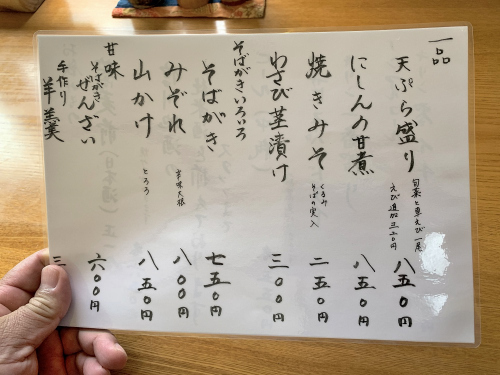 一品
天ぷら盛り 旬菜と車えび一尾 八五〇円
えび追加三二〇円
にしんの甘煮 八五〇円
焼きみそ くるみ 二五〇円
そばの実入
わさび茎漬け 三〇〇円
そばがきいろいろ
そばがき 七五〇円
みぞれ 辛味大根 八〇〇円
山かけ とろろ 八五〇円
甘味
そばがき
ぜんざい 六〇〇円
手作り
羊羹 三